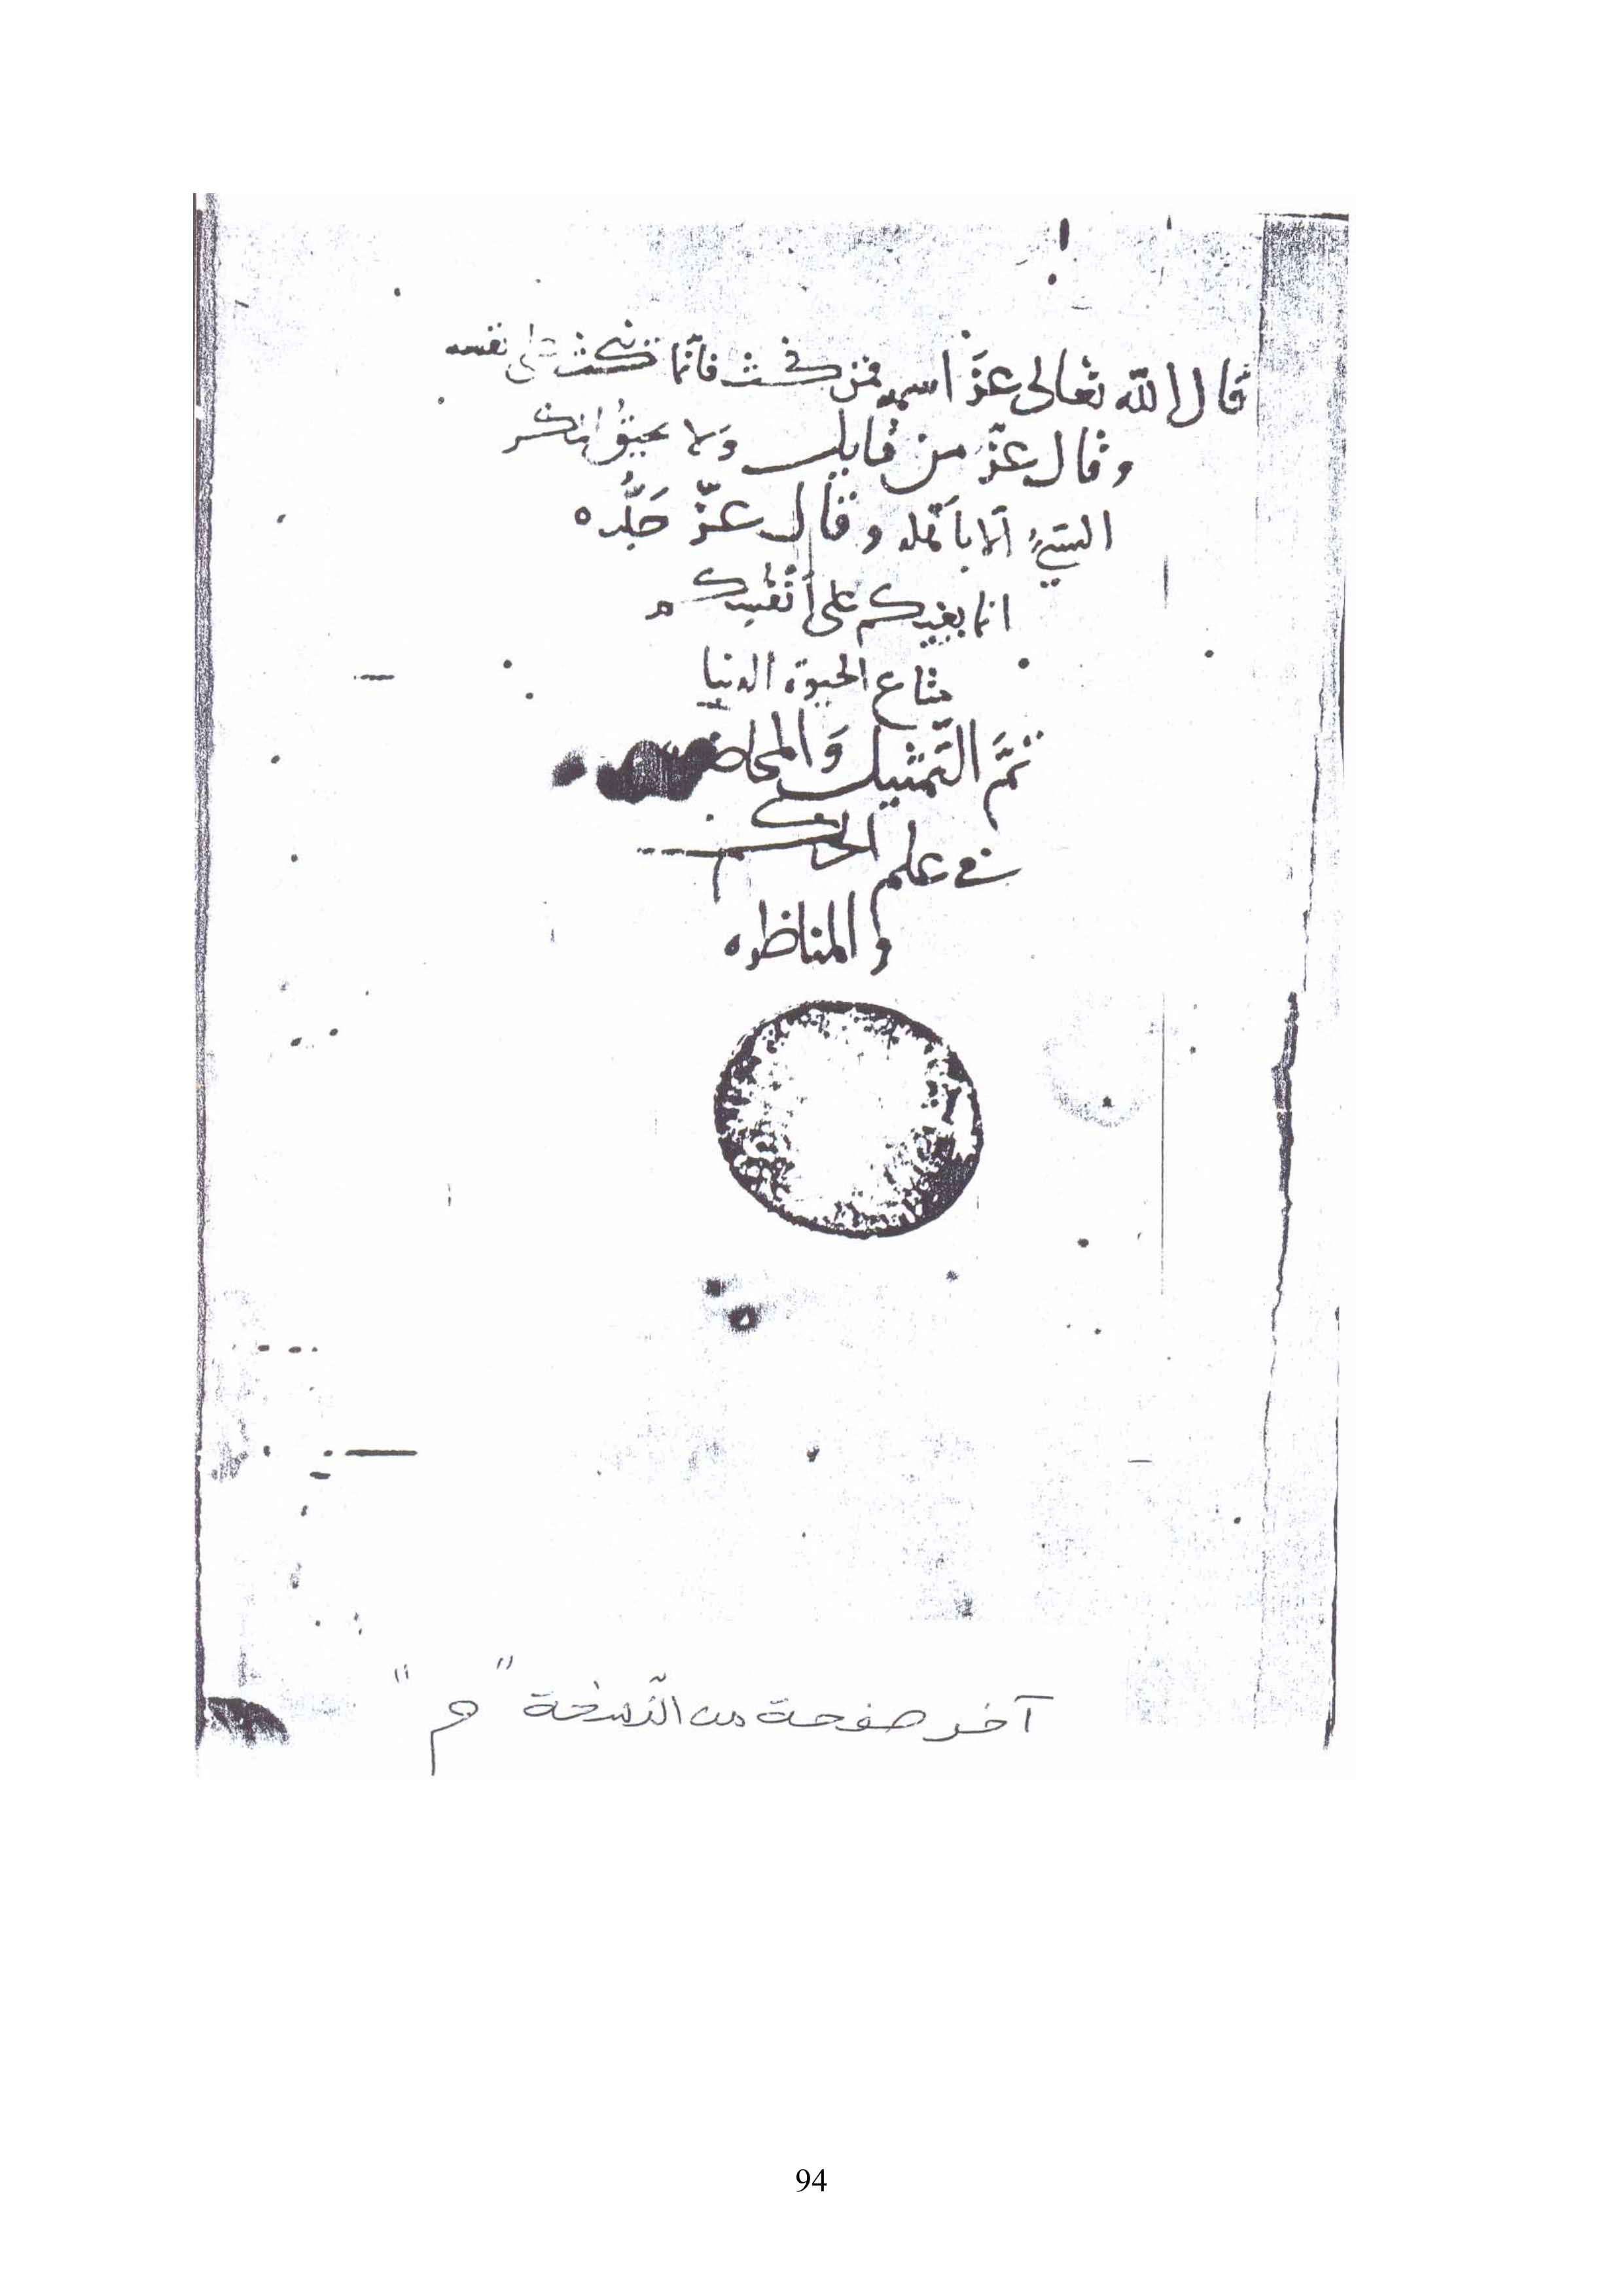 قال الله تعالى عزّ اسمه فمن نكث فانّما ينكث على نفسه
وقال عزّ من قايل ولا يحيقُ المكر
السّيّءُ الّا باَهله وقال عزّ جَدُّه
انما بغيكم على أنفسكم
متاع الحيوة الدنيا
تمَّ التّمثيل وَالمحاضره
في علم الحكم
والمناظره
آخر صفحة من النّسخة "م"
94